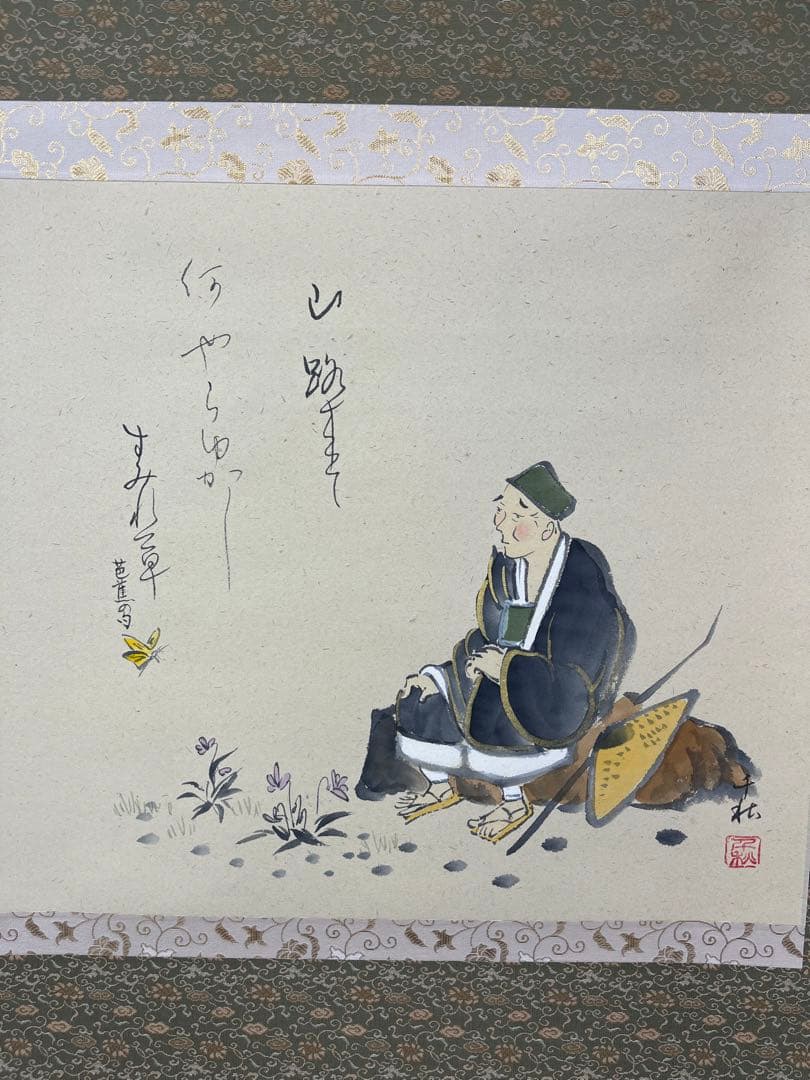 山路来て
何やらゆかし
すみれ草
芭蕉の句
千秋